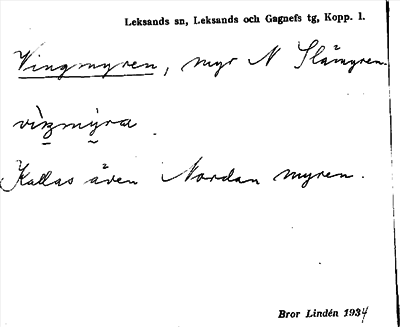 Leksands sn, Leksands och Gagnefs tg, Kopp. l.
Vingmyren, myr N Slåmyren.
Kallas även Nordan myren.
Bror Lindén 1934